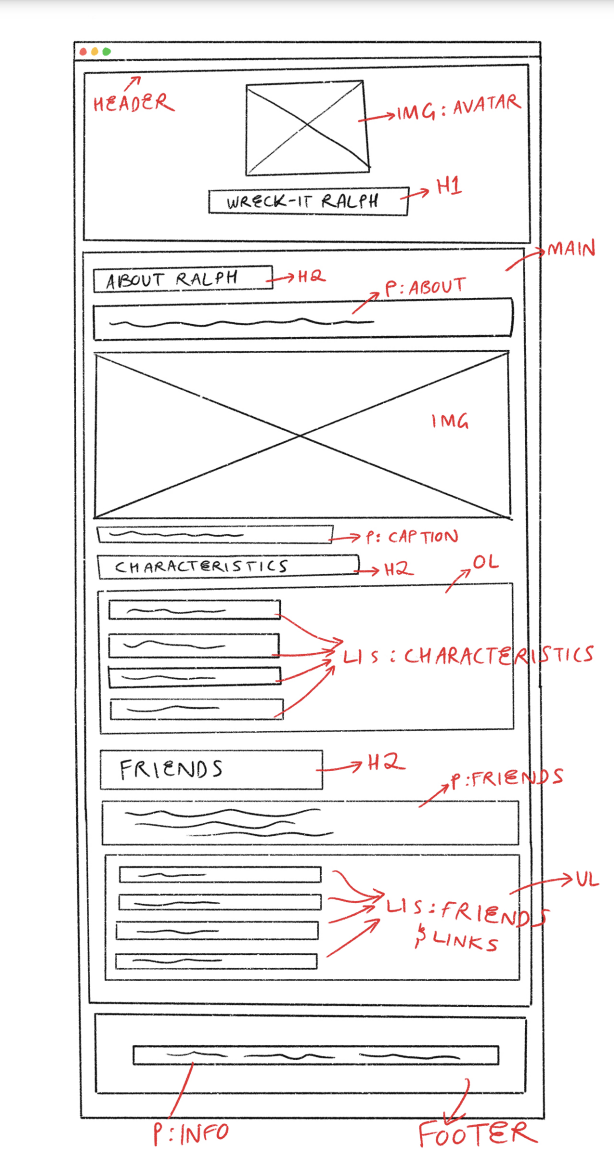 HEADER
IMG: AVATAR
H1
WRECK-IT RALPH
MAIN
ABOUT RALPH
H2
P: ABOUT
IMG
P: CAPTION
CHARACTERISTICS
H2
OL
LIS: CHARACTERISTICS
FRIENDS
H2
P: FRIENDS
UL
LIS: FRIENDS
& LINKS
P: INFO
FOOTER